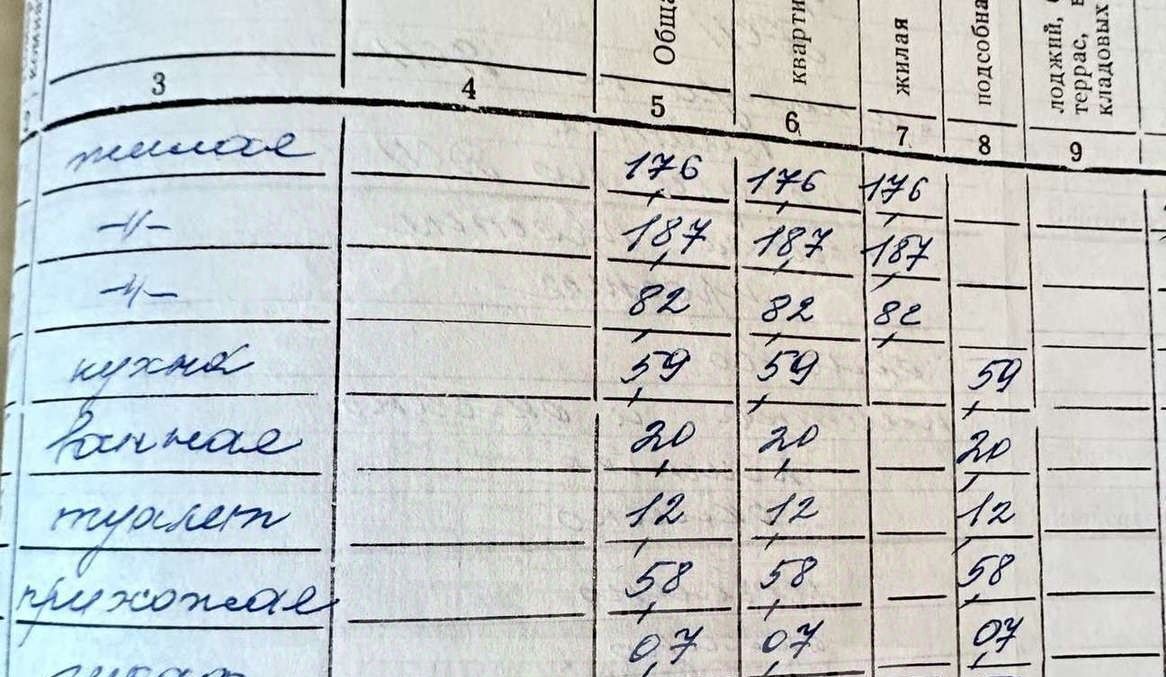 Обща
кварти
жилая
подсобна
лоджий,
террас,
кладовых
3 4 5 6 7 8 9
жилая 17,6 17,6 17,6
-"- 18,7 18,7 18,7
-"- 8,2 8,2 8,2
кухня 5,9 5,9 5,9
ванная 2,0 2,0 2,0
туалет 1,2 1,2 1,2
прихожая 5,8 5,8 5,8
0,7 0,7 0,7